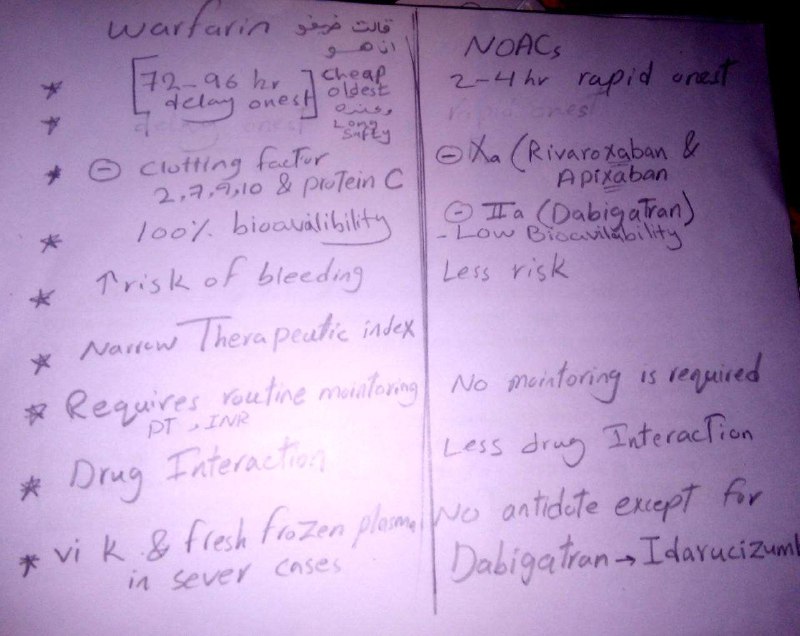 warfarin
قالت
72-96 hr
delay onest
cheap
oldest
Long
Safty
⊖ Clotting factor
2,7,9,10 & protein C
100% bioavalibility
↑risk of bleeding
Narrow Therapeutic index
Requires routine mointoring
PT, INR
Drug Interaction
vi k & fresh frozen plasma
in sever cases
NOACs
2-4 hr rapid onest
rapid onest
⊖ Xa (Rivaroxaban &
Apixaban
⊖ IIa (Dabigatran)
- Low Bioavilability
Less risk
No mointoring is required
Less drug Interaction
No antidote except for
Dabigatran → Idarucizumb